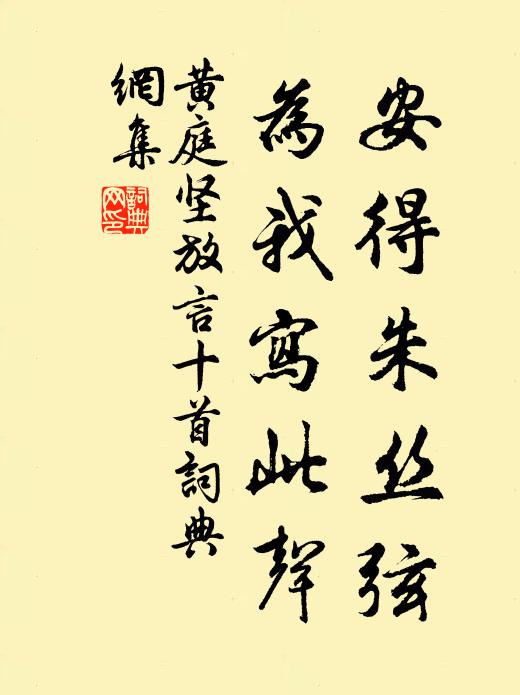 安得朱丝弦
為我寫此聲
黄庭坚放言十首詞典
網集
詞典
网印